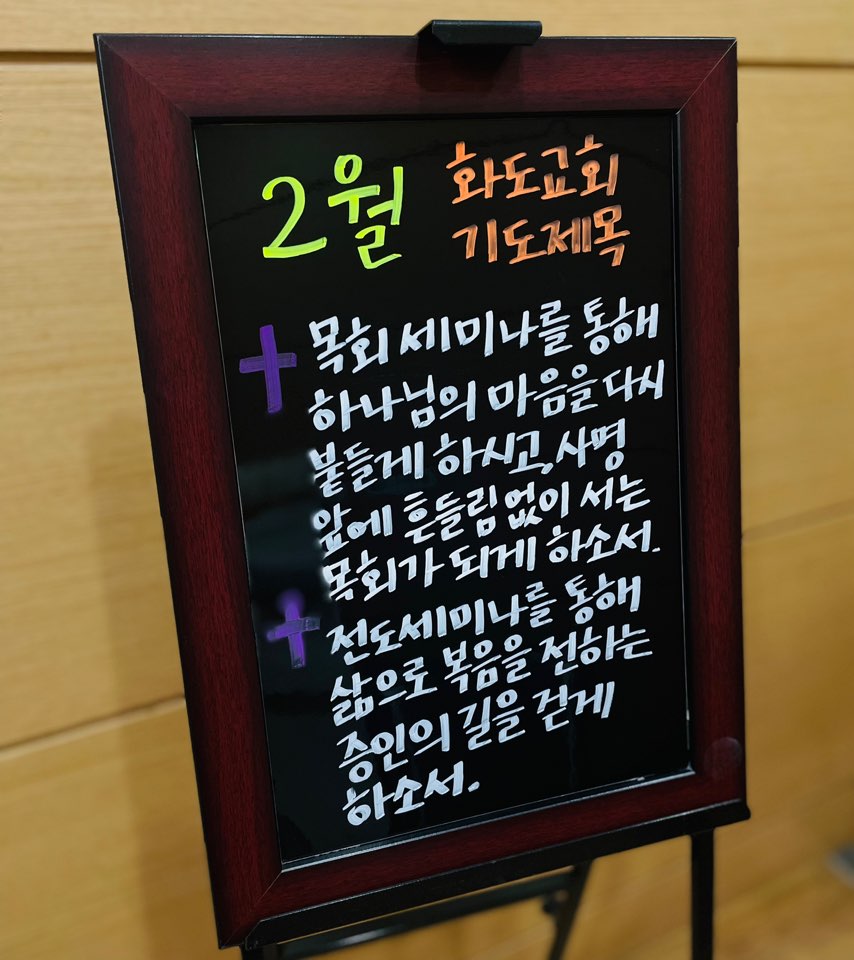 2월 화도교회
기도제목
목회 세미나를 통해
하나님의 마음을 다시
붙들게 하시고, 사명
앞에 흔들림 없이 서는
목회가 되게 하소서.
전도세미나를 통해
삶으로 복음을 전하는
증인의 길을 걷게
하소서.